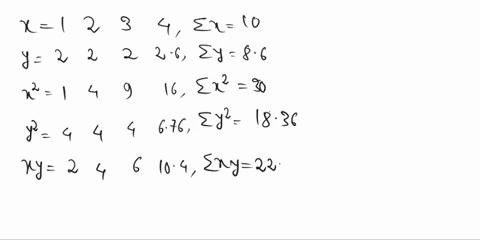 x = 1 2 3 4, Σx = 10
y = 2 2 2 2.6, Σy = 8.6
x² = 1 4 9 16, Σx² = 30
y² = 4 4 4 6.76, Σy² = 18.36
xy = 2 4 6 10.4, Σxy = 22.